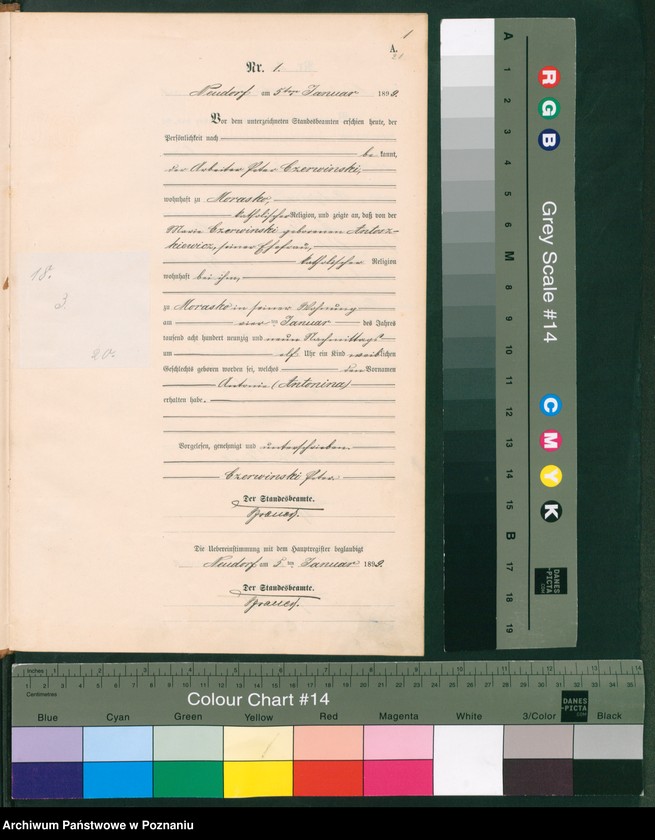 1
A.
21
Nr. 1.
Neudorf am 5ten Januar 1899.
Vor dem unterzeichneten Standesbeamten erschien heute, der
Persönlichkeit nach
be kannt,
der Arbeiter Peter Czerwinski,
wohnhaft zu Morasko,
katholischer Religion, und zeigte an, daß von der
Marie Czerwinski geborenen Antosz-
kiewicz, seiner Ehefrau,
katholischer Religion
wohnhaft bei ihm,
zu Morasko in seiner Wohnung
am vier ten Januar des Jahres
tausend acht hundert neunzig und neun Nachmittags
um elf Uhr ein Kind weiblichen
Geschlechts geboren worden sei, welches den Vornamen
Antonie (Antonina)
erhalten habe.
Vorgelesen, genehmigt und unterschrieben.
Czerwinski Peter.
Der Standesbeamte.
Die Uebereinstimmung mit dem Hauptregister beglaubigt
Neudorf am 5. ten Januar 1899.
Der Standesbeamte.
18.
3.
20.
A 1 2 3 4 5 6 M 8 9 10 11 12 13 14 15 B 17 18 19
R G B
Grey Scale #14
C M Y K
DANES-PICTA.COM
Inches 1 2 3 4 5 6 7 8 9 10 11 12 13 14
Centimetres 1 2 3 4 5 6 7 8 9 10 11 12 13 14 15 16 17 18 19 20 21 22 23 24 25 26 27 28 29 30 31 32 33 34 35
Colour Chart #14
DANES-PICTA.COM
Blue Cyan Green Yellow Red Magenta White 3/Color Black
Archiwum Państwowe w Poznaniu